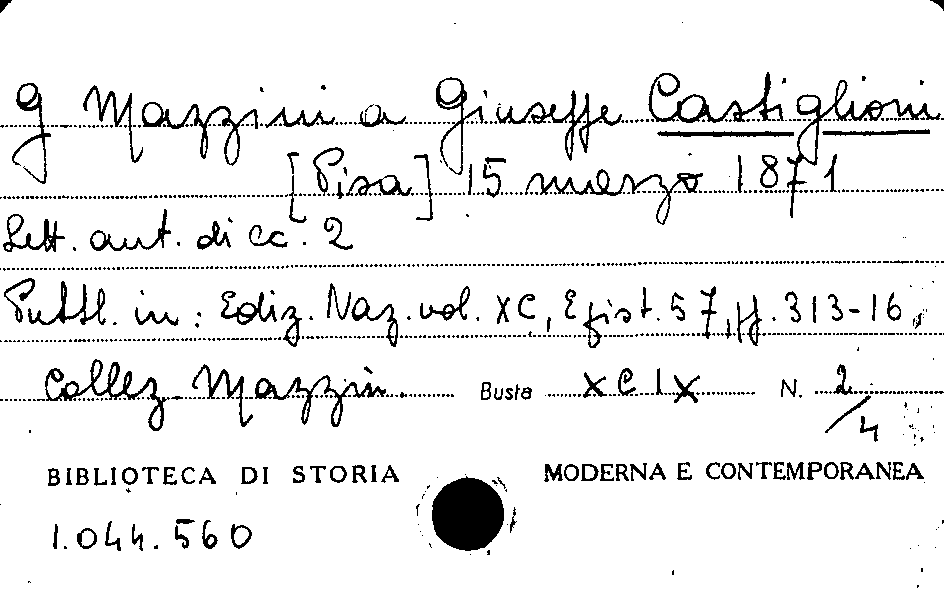 G Mazzini a Giuseppe Castiglioni
[Pisa] 15 marzo 1871
Lett. aut. di cc. 2
Pubbl. in: Ediz. Naz. vol. XC, Epist. 57, pp. 313-16.
Collez. Mazzin. Busta XCIX N. 2/4
BIBLIOTECA DI STORIA MODERNA E CONTEMPORANEA
1.044.560